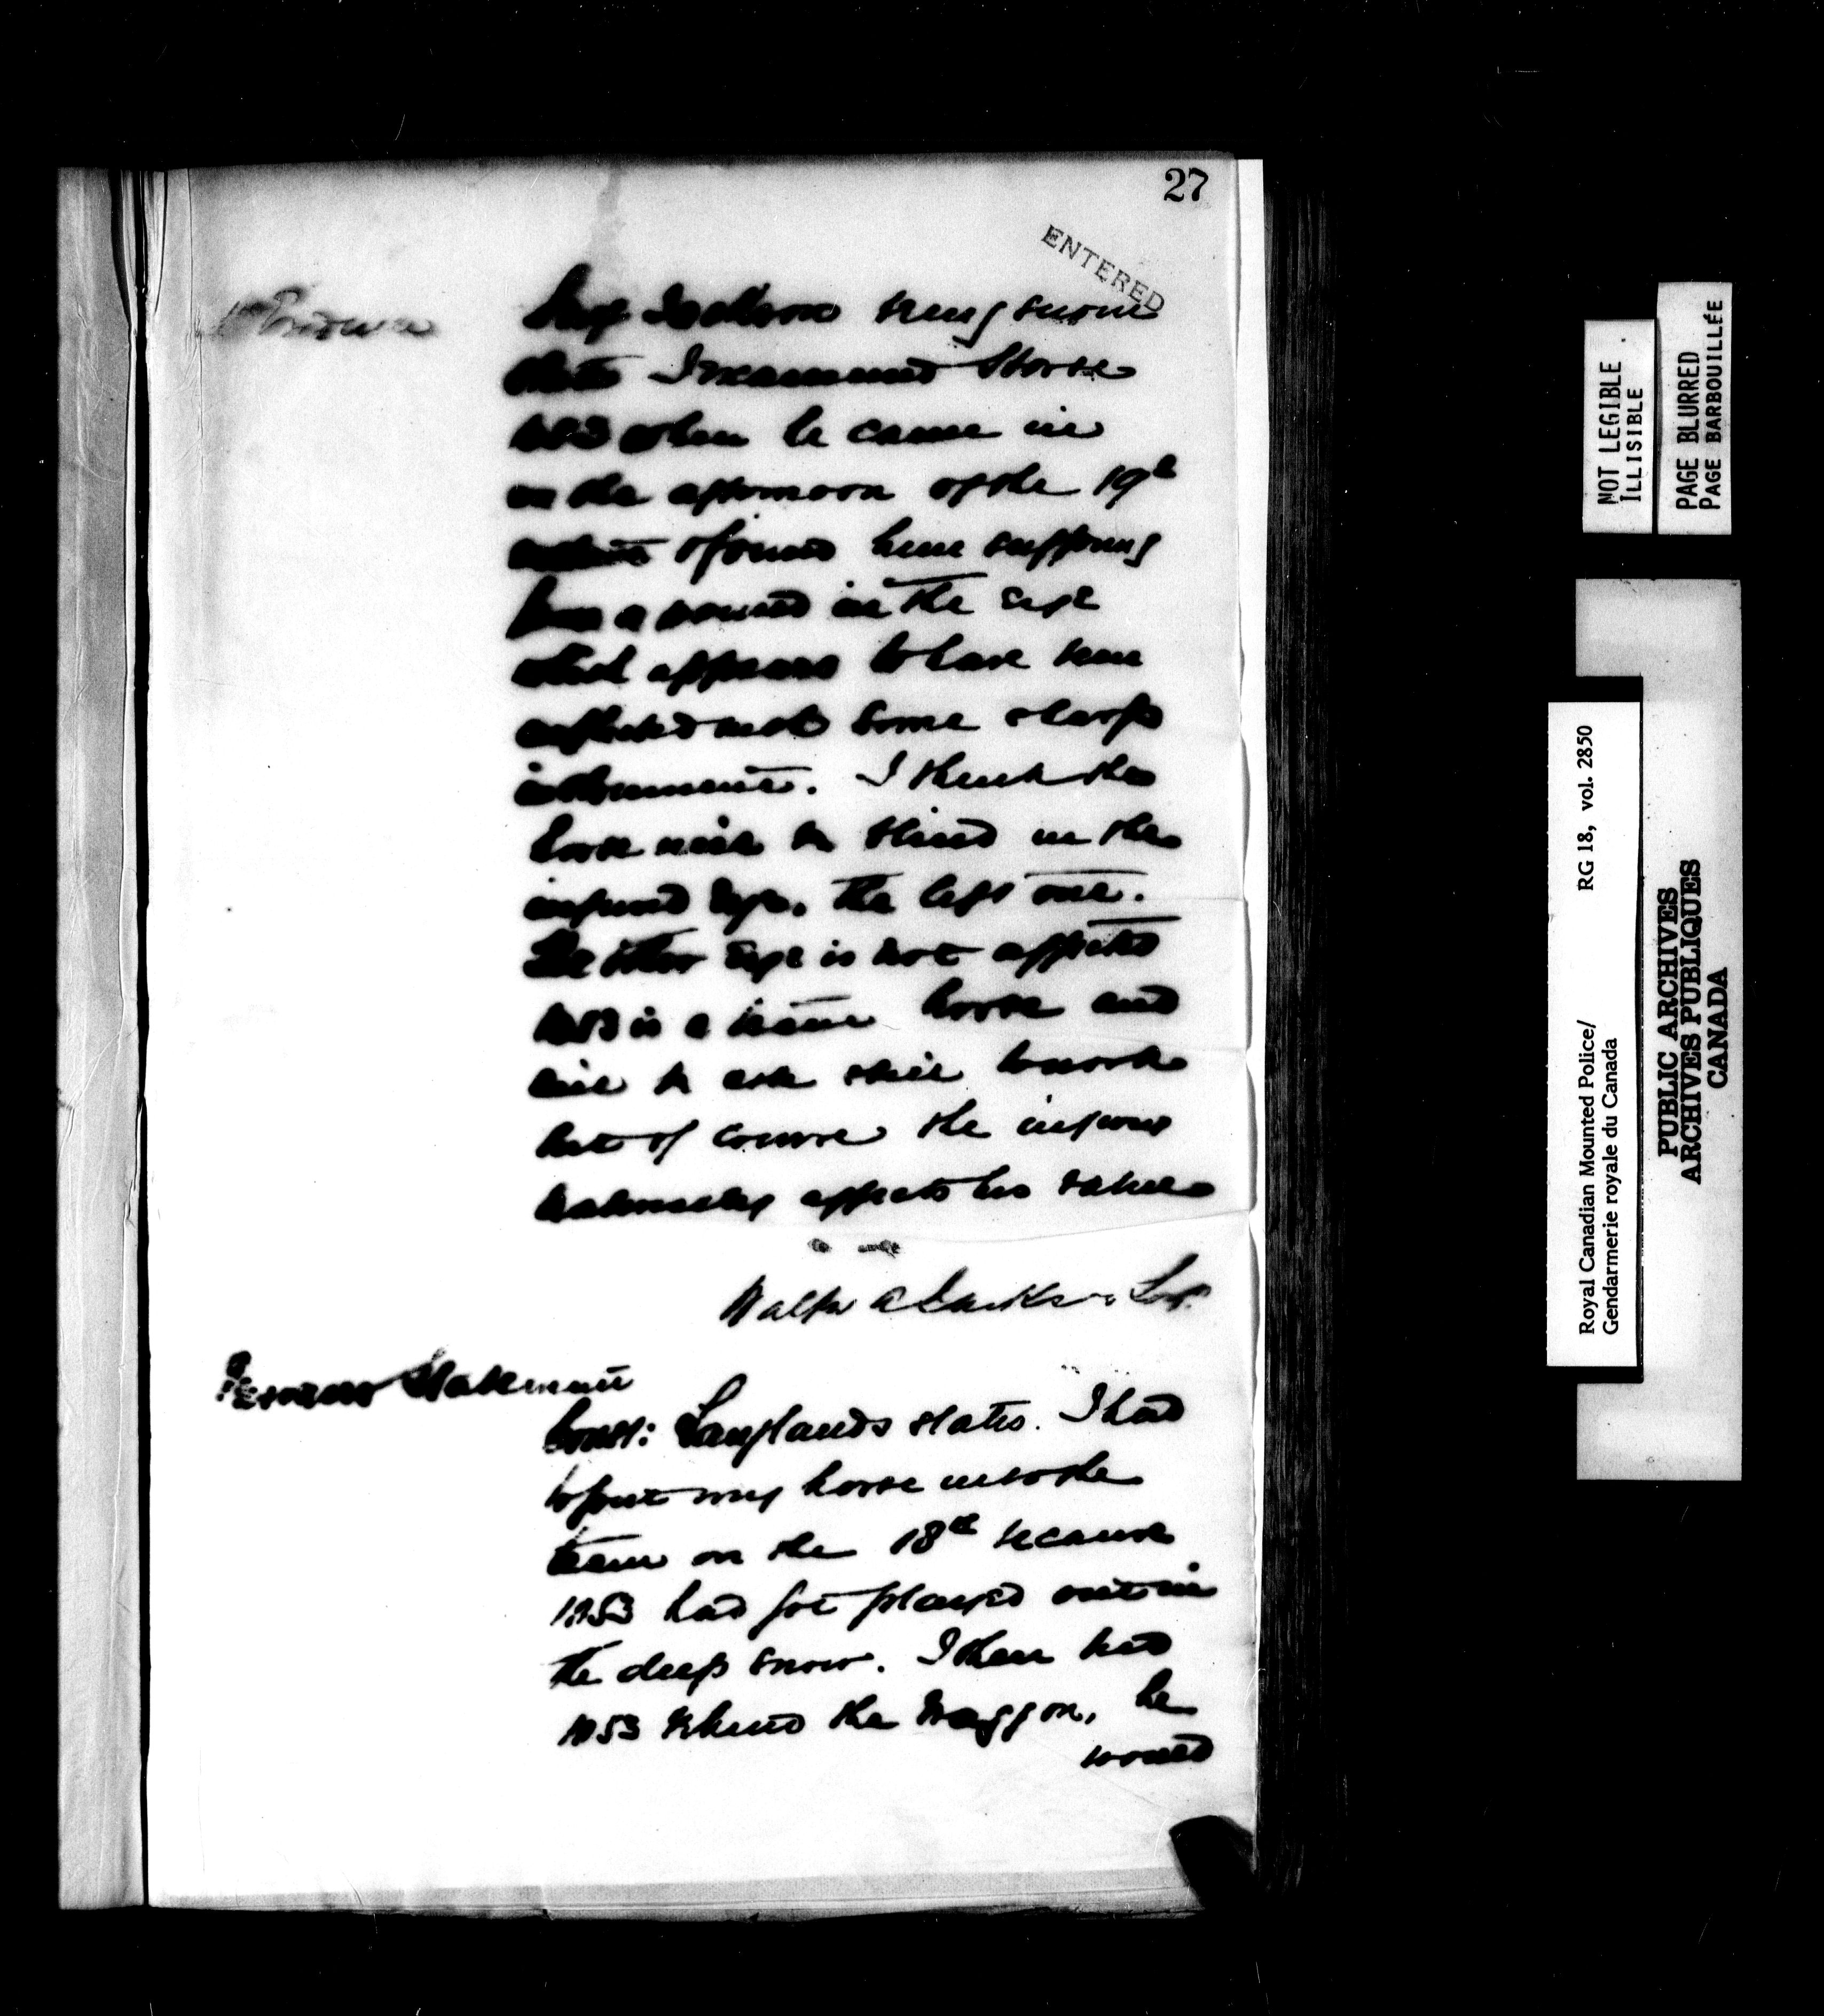 27
ENTERED
Jackson being sworn
states I examined Horse
1053 when he came in
on the afternoon of the 19th
& found him suffering
from a wound in the eye
which appears to have been
inflicted with some sharp
instrument. I think the
horse will be blind in the
injured eye, the left one.
The other eye is not affected
1053 is a team horse and
will be able still to work
but of course the injury
materially affects his value
Walter Jackson
Prisoners Statement
Const: Langlands states. I had
to put my horse into the
team on the 18th because
1053 had got played out in
the deep snow. I then tied
1053 behind the Waggon, he
would
NOT LEGIBLE
ILLISIBLE
PAGE BLURRED
PAGE BARBOUILLÉE
Royal Canadian Mounted Police/ RG 18, vol. 2850
Gendarmerie royale du Canada
PUBLIC ARCHIVES
ARCHIVES PUBLIQUES
CANADA